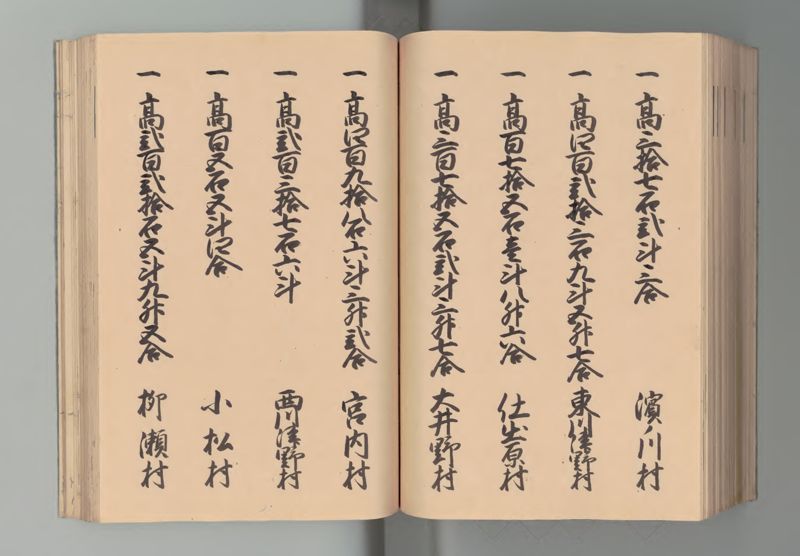 一 高三拾七石弐斗三合 濱ノ川村
一 高四百弐拾三石九斗五升七合 東川津野村
一 高百七拾五石壱斗八升六合 仕出原村
一 高三百七拾五石弐斗三升七合 大井野村
一 高四百九拾八石六斗三升弐合 宮内村
一 高弐百三拾七石六斗 西川津野村
一 高百五石五斗四合 小松村
一 高弐百弐拾石五斗九升五合 柳瀬村